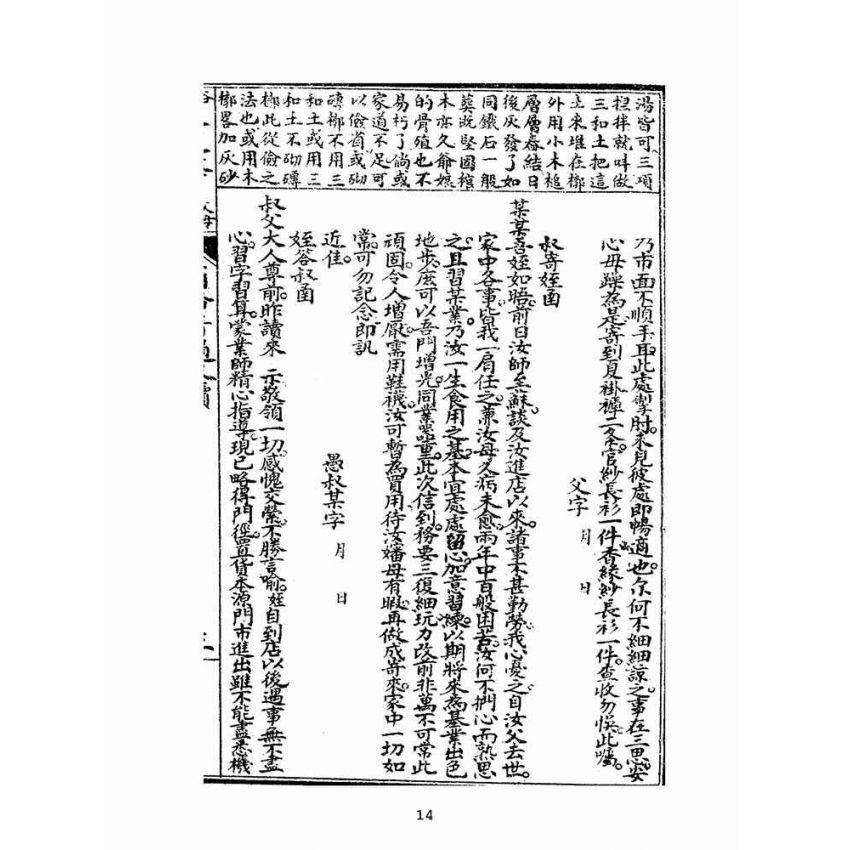 湯皆可三項
担拌就叫做
三和土把這
土來堆在槨
外用小木槌
層層舂結日
後灰發了如
同鐵石一般
葬既堅固棺
木亦久耐媒
的骨殖也不
易朽了倘或
家道不足可
以儉省或砌
磚槨不用三
和土或用三
和土不砌磚
槨此從儉之
法也或用木
槨畧加灰砂
乃市面不順手耳此處掣肘未見彼處即暢適也尔何不細細諒之事在三思安
心毋躁為是寄到夏褂褲二条官紗長衫一件香緣紗長衫一件查收勿悮此囑
父字 月 日
叔寄姪函
某某吾姪如晤前日汝師至蘇談及汝進店以來諸事不甚勤勞我心憂之自汝父去世
家中各事皆我一肩任之兼汝母久病未愈兩年中百般困苦汝何不捫心而熟思
之且習某業乃汝一生食用之基本宜處處留心加意習練以期將來為基業出色
地步庶可以吾門增光同業器重此次信到務要三復細玩力改前非萬不可常此
頑固令人增厭需用鞋襪汝可暫為買用待汝嬸母有暇再做成寄來家中一切如
常可勿記念即訊
近佳 愚叔某字 月 日
姪答叔函
叔父大人尊前昨讀來 示敬領一切感愧交縈不勝言喻姪自到店以後遇事無不盡
心習字習算蒙業師精心指導現已略得門徑置貨本源門市進出雖不能盡悉機
14